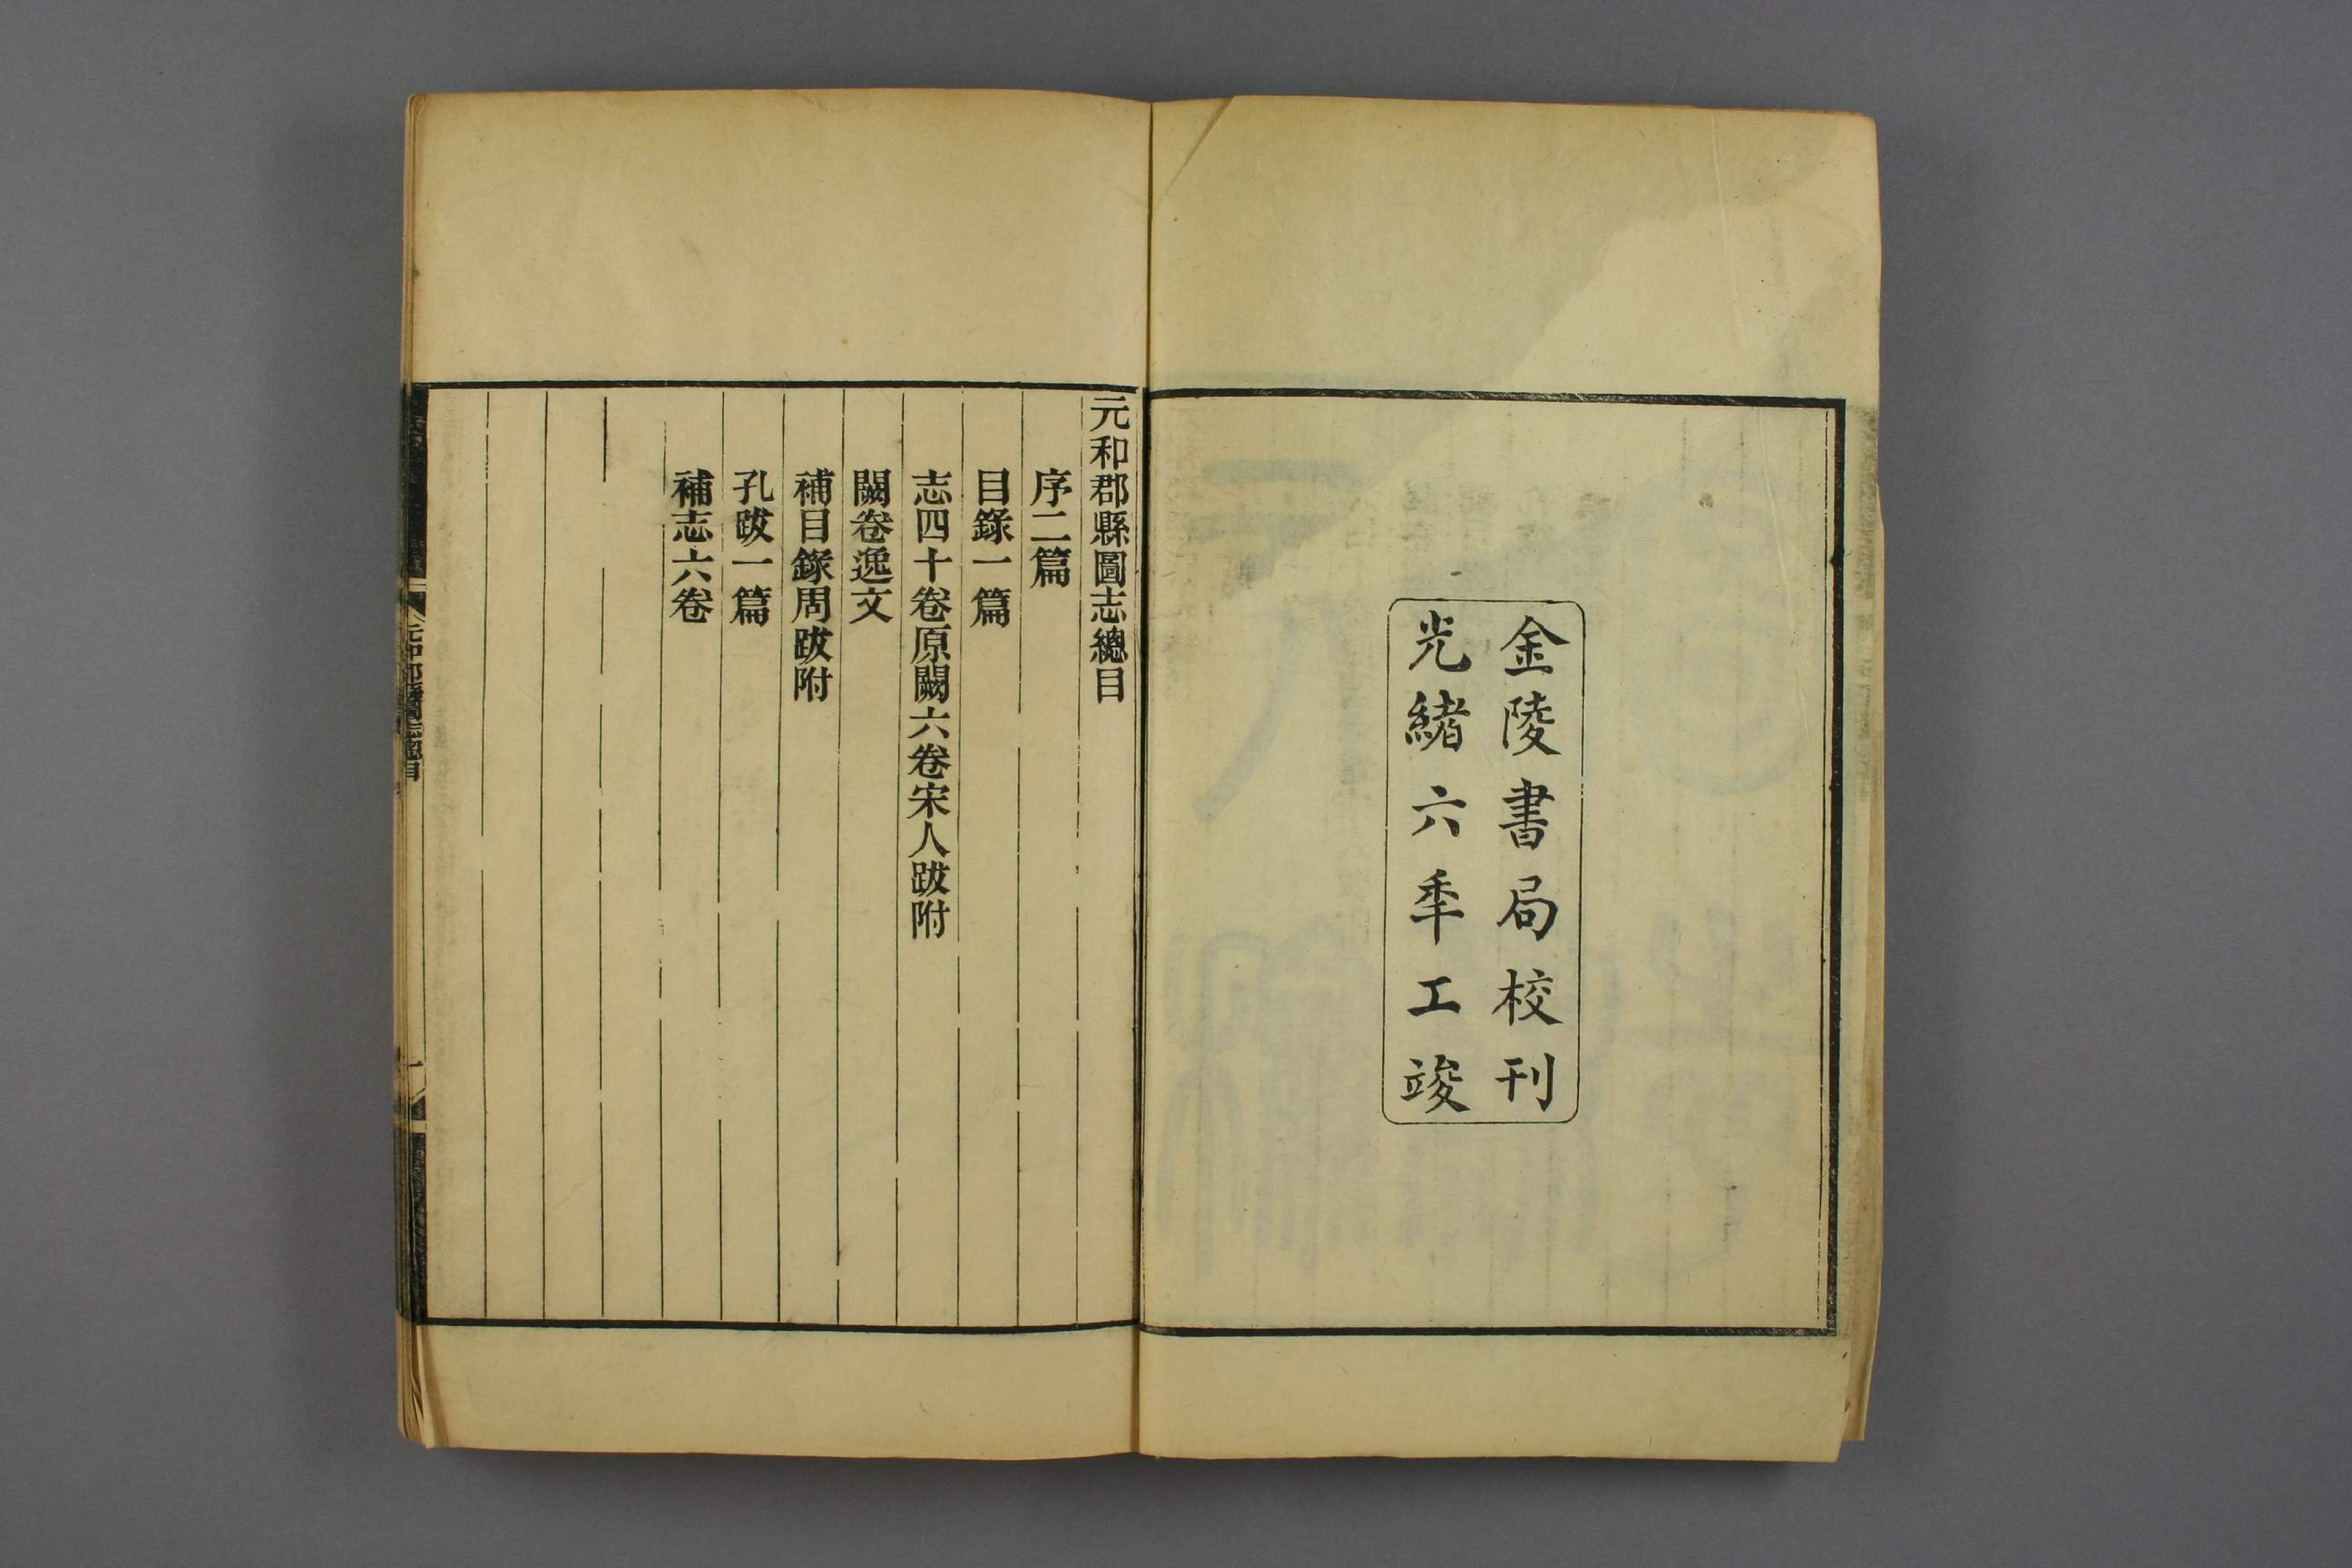 金陵書局校刊
光緒六秊工竣
元和郡縣圖志總目
序二篇
目錄一篇
志四十卷原闕六卷宋人跋附
闕卷逸文
補目錄周跋附
孔跋一篇
補志六卷
元和郡縣圖志總目
一